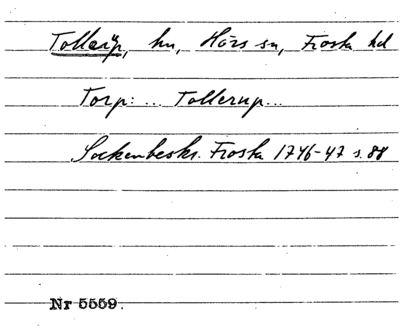 Tollerup, hn, Hörs sn, Frosta hd
Torp: ... Tollerup...
Sockenbeskr. Frosta 1746-47 s. 88
Nr 5559.